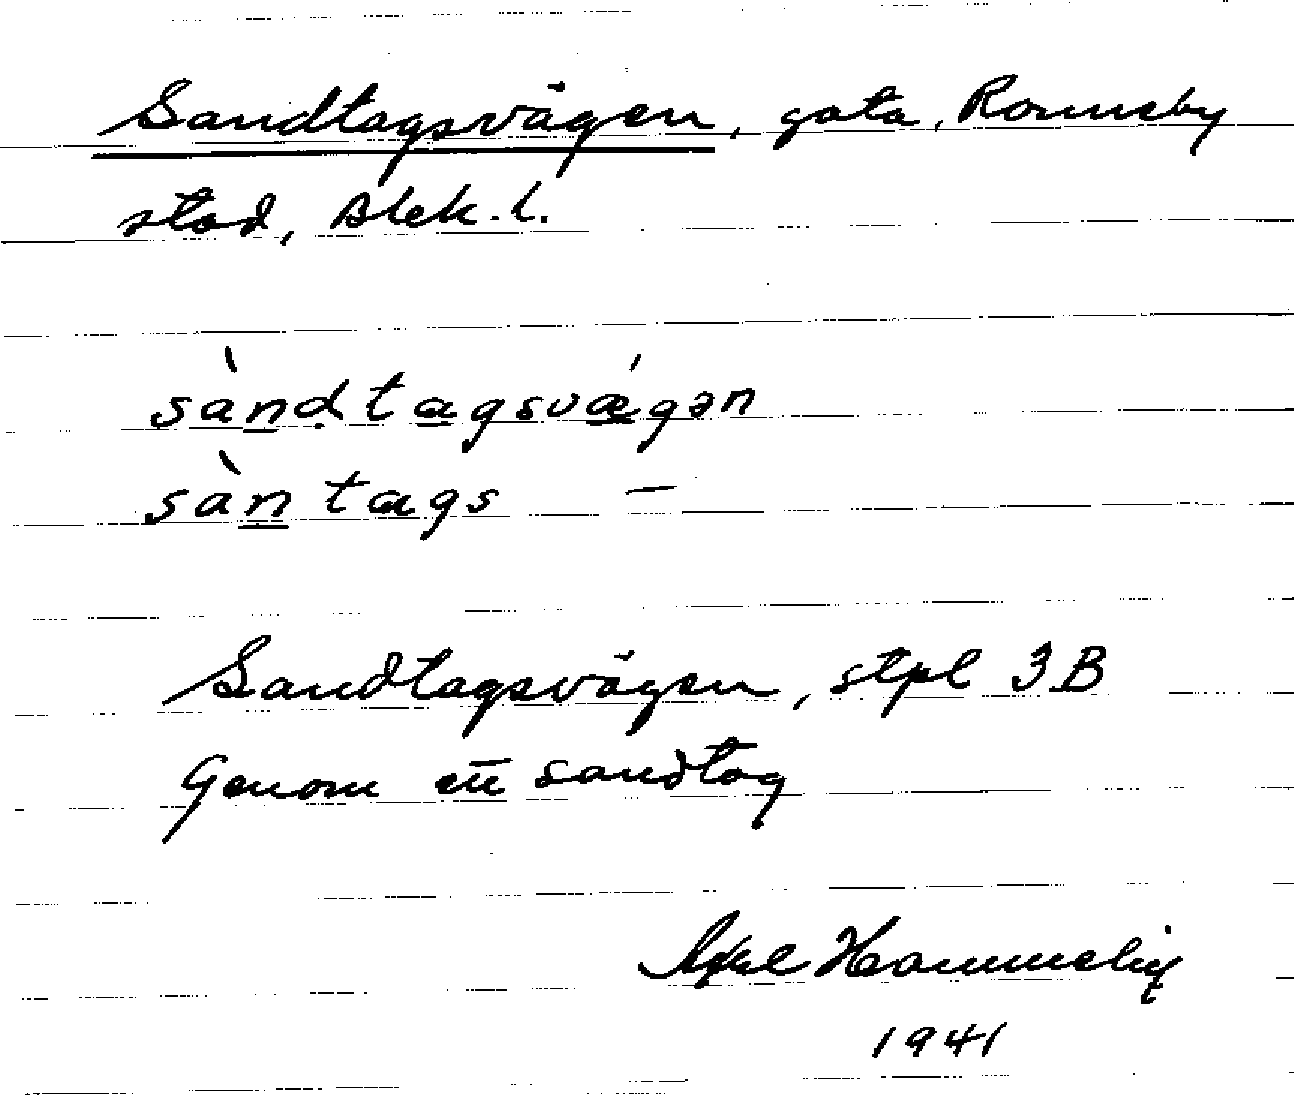 Sandtagsvägen, gata, Ronneby
stad, Blek. l.
sàndtagsvǽgən
sàntags —
Sandtagsvägen, stpl 3B
Genom ett sandtag
Axel
1941